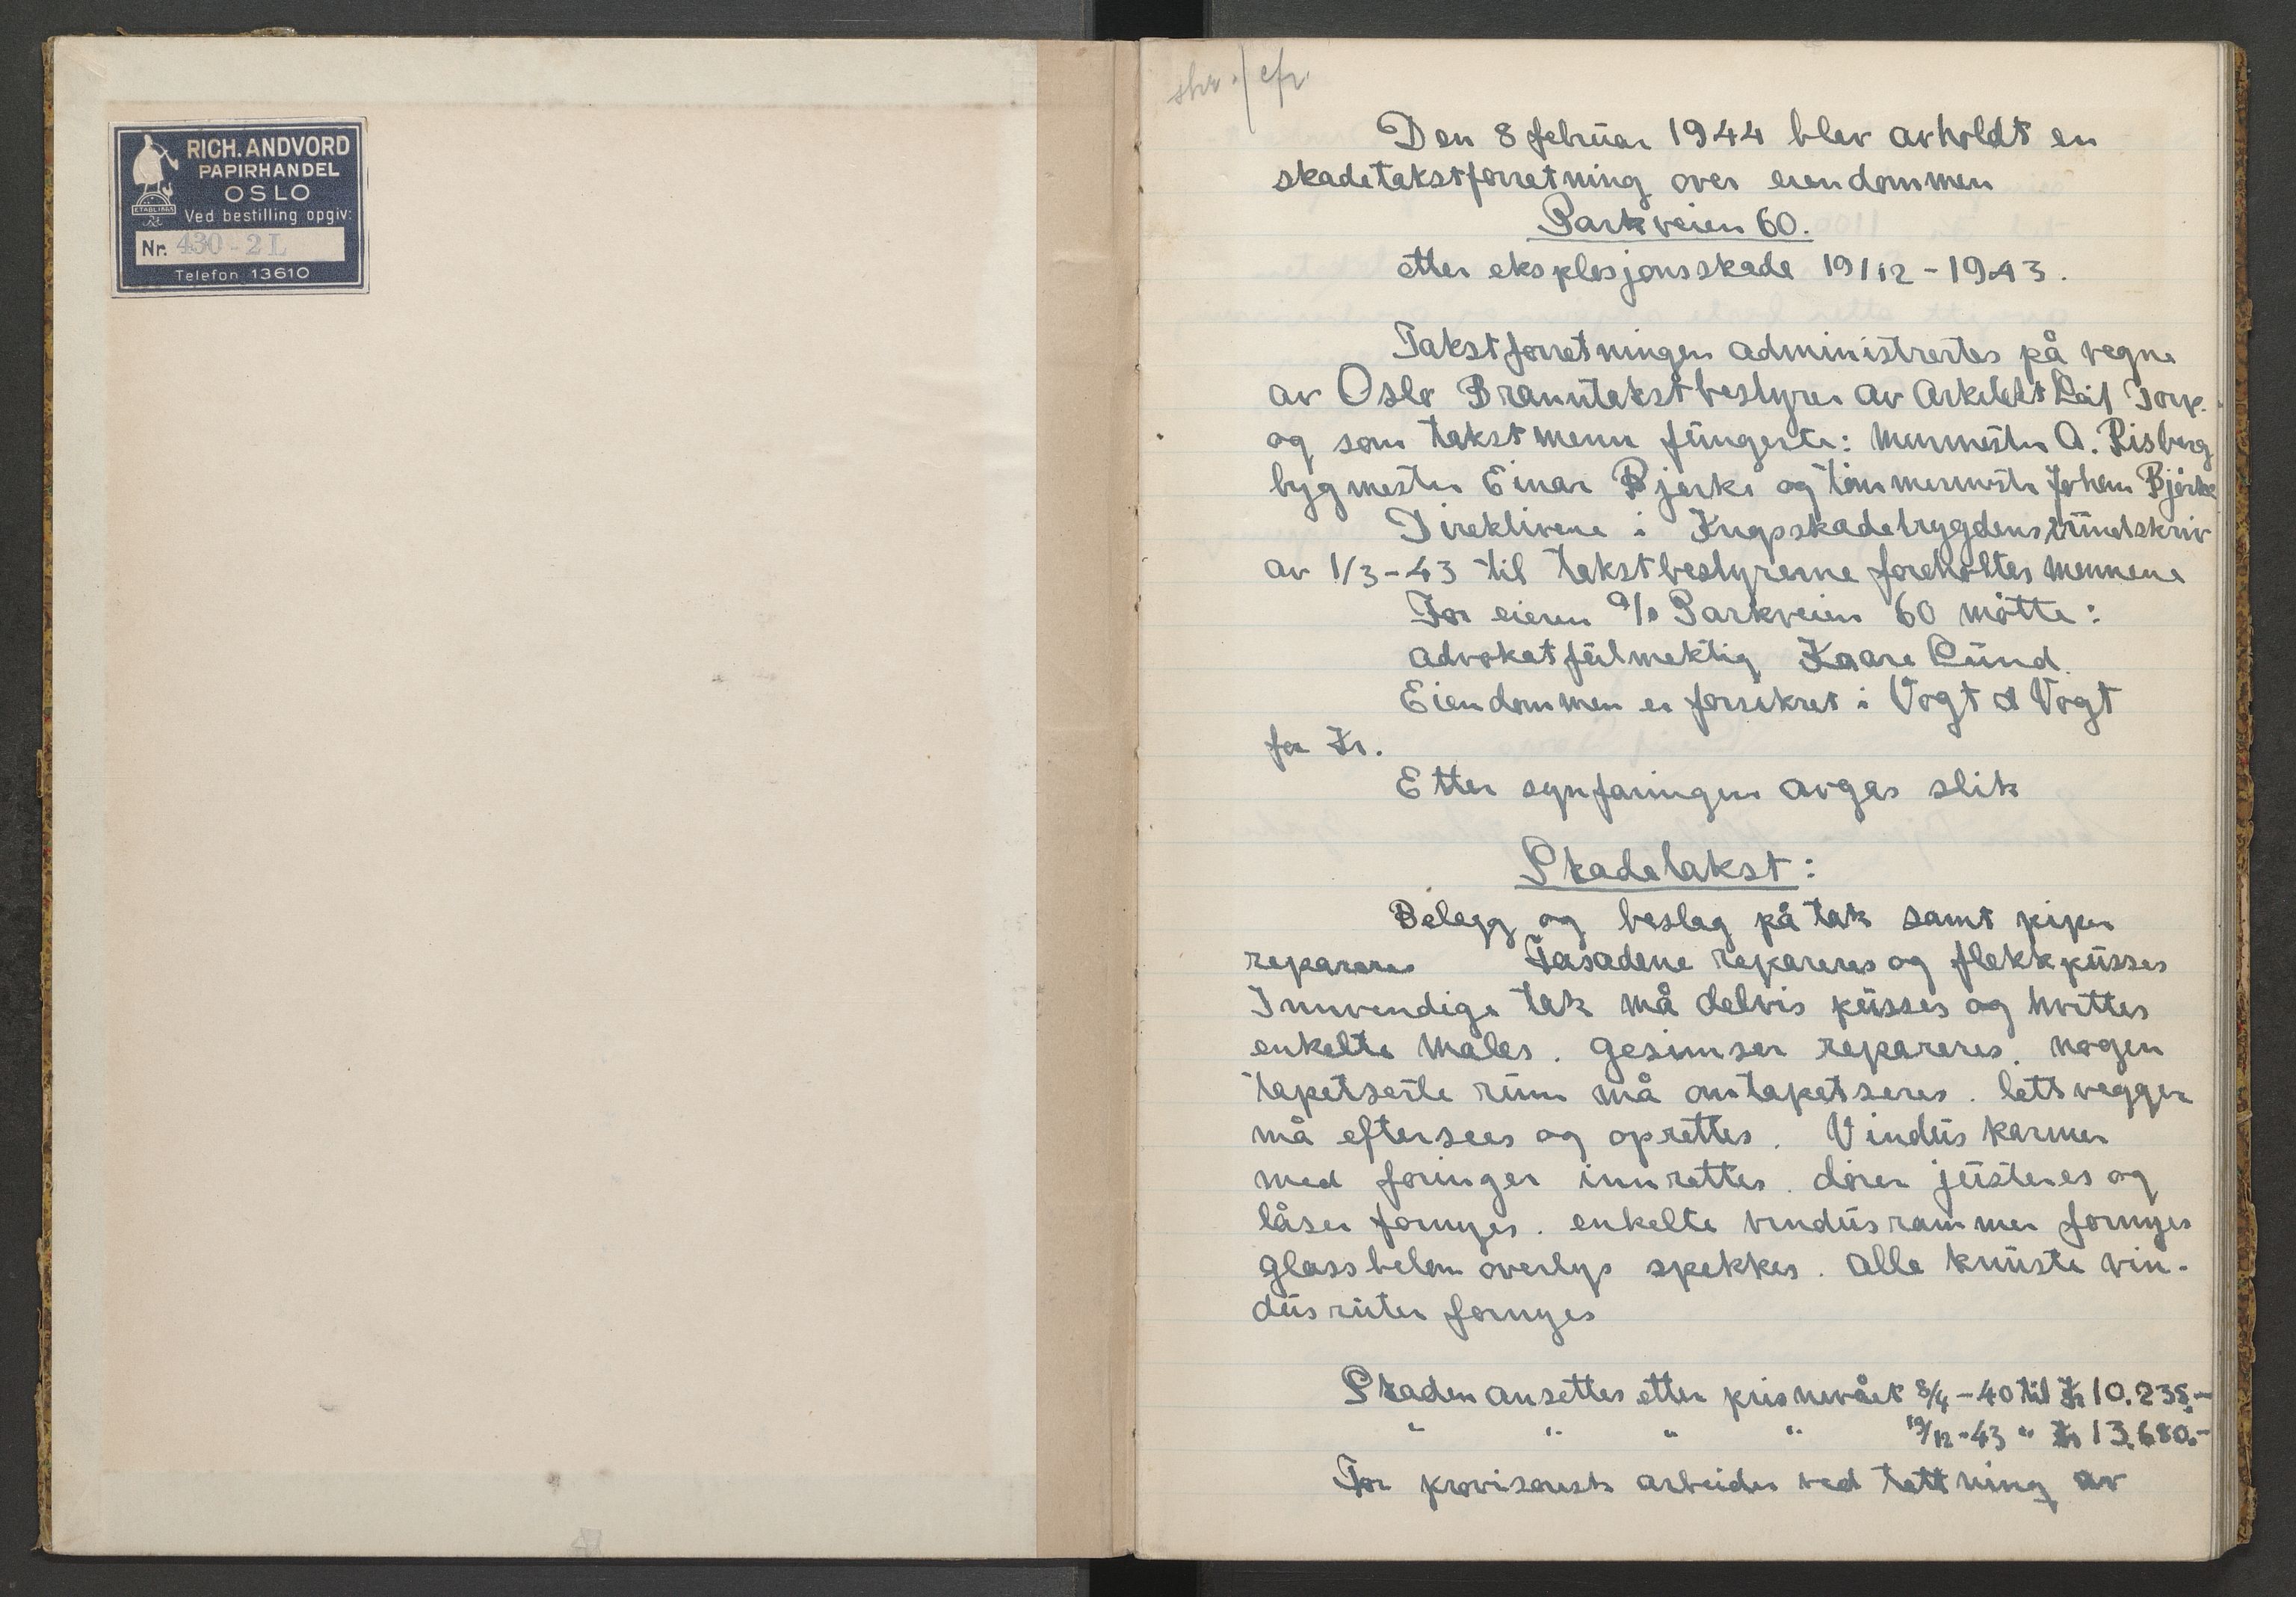 RICH. ANDVORD
PAPIRHANDEL
OSLO
ETABL. 1865
Ved bestilling opgiv:
Nr. 430-2L
Telefon 13610
skr. / efr.
Den 8 februar 1944 blev avholdt en
skadetakstforretning over eiendommen
Parkveien 60.
etter eksplosjonsskade 19/12-1943.
Takstforretningen administrertes på vegne
av Oslo Branntakstbestyrer av Arkitekt Leif Torp.
og som takstmenn fungerte: Murmester A. Risberg
bygmester Einar Bjerke og tømmermester Johan Bjerke
Direktivene i Krigsskadetrygdens rundskriv
av 1/3-43 til takstbestyrerne foreholtes mennene
For eieren A/S Parkveien 60 møtte:
advokatfulmektig Kaare Lund.
Eiendommen er forsikret i Vogt & Vogt
for Kr.
Etter synfaringen avgas slik
Skadetakst:
Belegg og beslag på tak samt piper
repareres Fasadene repareres og flekkpusses
Innvendige tak må delvis pusses og hvittes
enkelte males. Gesimser repareres. nogen
tapetserte rum må omtapetseres. lettvegger
må eftersees og oprettes. Vindus karmer
med foringer innrettes. dører justeres og
låser fornyes. enkelte vindusrammer fornyes
glassbeton overlys spekkes. Alle knuste vin-
dusruter fornyes
Skaden ansettes etter prisnivået 8/4-40 til Kr 10.235.-
" " " " 19/12-43 " Kr 13.680.-
For provisorisk arbeider ved tettning av